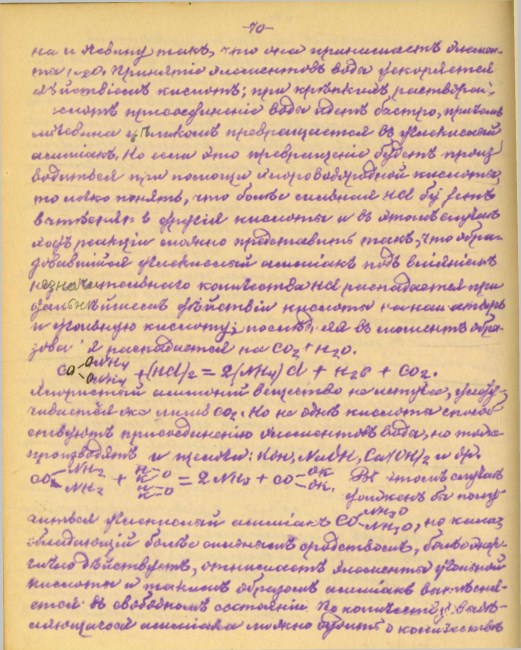 -70-
на и мочевину такъ, что она принимаетъ элемен-
та H2O. Принятіе элементовъ воды ускоряется
дѣйствіемъ кислотъ; при крѣпкихъ растворахъ
кислотъ присоединеніе воды идетъ быстро, причемъ
мочевина цѣликомъ превращается въ углекислый
амміакъ. Но если это превращеніе будетъ произ
водиться при помощи хлороводородной кислоты,
то легко понять, что болѣе сильная HCl будетъ
вытѣснять другія кислоты и въ этомъ случаѣ
ходъ реакціи можно представить такъ, что обра-
зовавшійся углекислый амміакъ подъ вліяніемъ
незначительнаго количества HCl распадается при
дальнѣйшемъ дѣйствіи кислоты на нашатырь
и угольную кислоту; послѣдняя въ моментъ обра-
зованія распадается на CO2 + H2O.
CO ONH4 ONH4 + (HCl)2 = 2(NH4)Cl + H2O + CO2.
Хлористый аммоній вещество нелетучее, улету-
чивается же лишь CO2. Но не однѣ кислоты способ
ствуютъ присоединенію элементовъ воды, но тоже
производятъ и щелочи: KOH, NaOH, Ca(OH)2 и др.
CO NH2 NH2 + H K O H K O = 2NH3 + CO OK OK. Въ этомъ случаѣ
долженъ бы полу-
читься углекислый амміакъ CO NH4O NH4O, но кали
обладающій болѣе сильнымъ сродствомъ, болѣе энер-
гично дѣйствуетъ, отнимаетъ элементы угольной
кислоты и такимъ образомъ амміакъ вытѣсня-
ется въ свободномъ состояніи. По количеству выдѣ-
ляющагося амміака можно судить о количествѣ